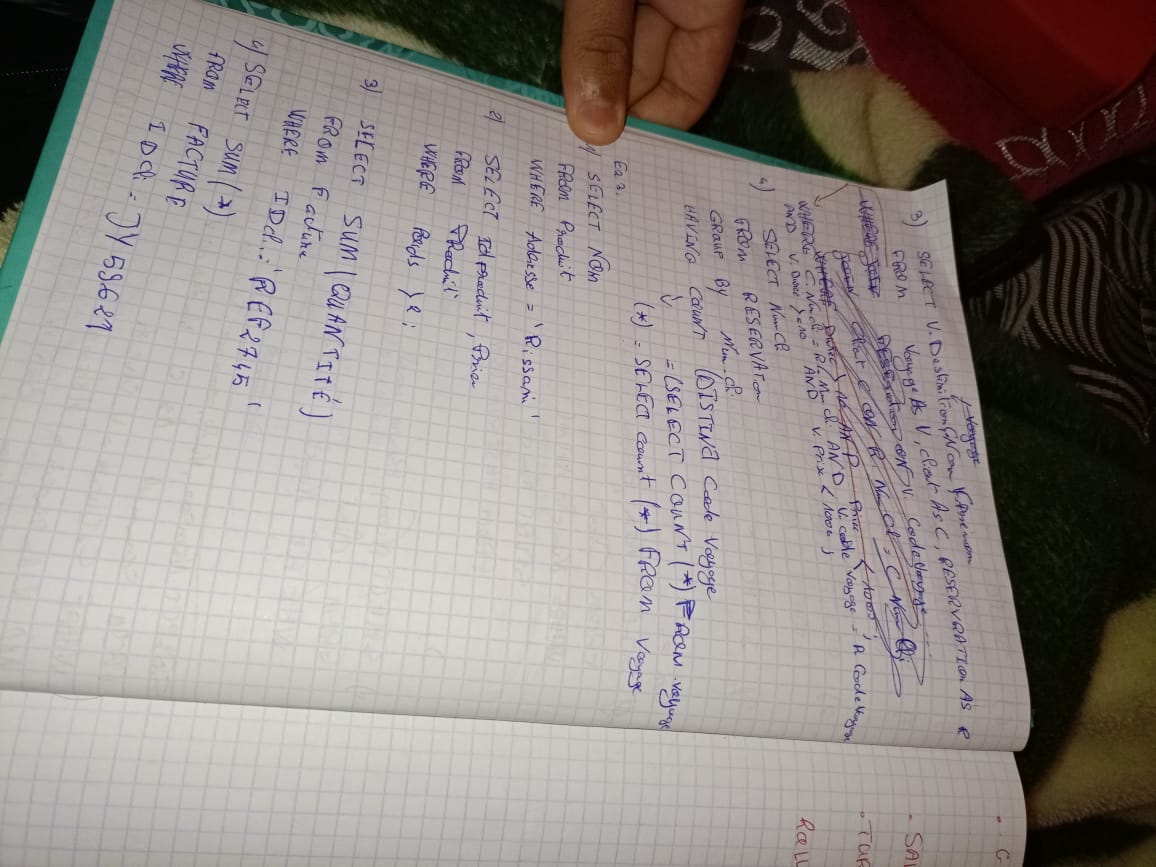 Voyage
3) SELECT V. Destinition, C.Nom, C.Prenom
FROM Voyage As V, client As C, RESERVRATION As R
RESERVATION ON V. Code Voyage
Client C ON R. Num Cl = C Num Cli
WHERE Duree > 10 AND Prix < 1000 ;
WHERE C. Numcli = R. Num cli AND V. code Voyage = R Code Voyage
AND V. Duree >= 10 AND V. Prix < 1000 ;
4) SELECT Num Cli
FROM RESERVATion
GRoup By Num. cli
HAVING COUNT (DISTINCT Code Voyage
= (SELECT COUNT (*) FROM voyage
(*) = SELECT count (*) FROM Voyage
Ex 3.
1) SELECT NOM
FROM Produit
WHERE Adresse = 'Rissani'
2) SELECT Id produit , Prix
FROM PRoduit
WHERE Poids > 2 ;
3) SELECT SUM (QUANTITÉ)
FROM Facture
WHERE IDcli = 'REF2745'
4) SELECT SUM (*)
FROM FACTURE
WHERE IDcli = JY 59621